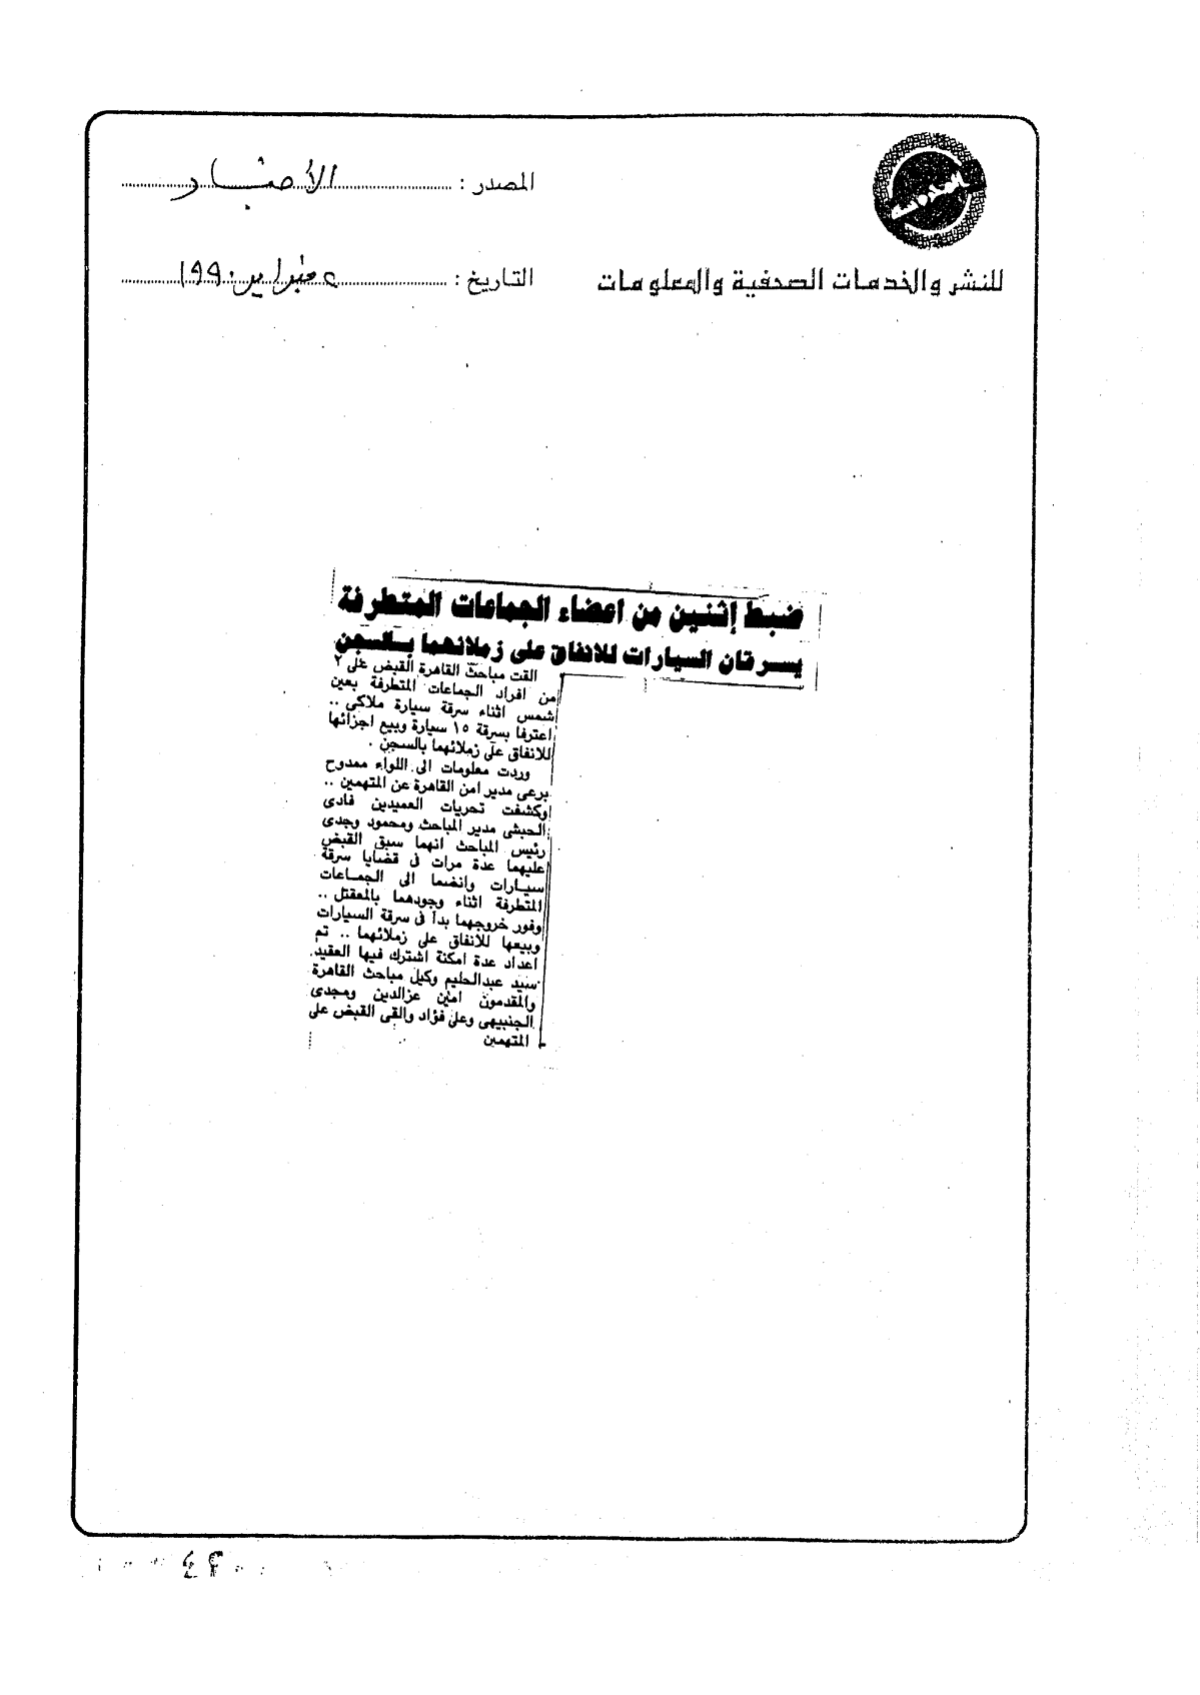 المصدر : الأخبار
للنشر والخدمات الصحفية والمعلومات
التاريخ : ٢ فبراير ١٩٩٠
ضبط إثنين من اعضاء الجماعات المتطرفة
يسرقان السيارات للانفاق على زملائهما بالسجن
القت مباحث القاهرة القبض على ٢
من افراد الجماعات المتطرفة بعين
شمس اثناء سرقة سيارة ملاكى ..
اعترفا بسرقة ١٥ سيارة وبيع اجزائها
للانفاق على زملائهما بالسجن .
وردت معلومات الى اللواء ممدوح
برعى مدير امن القاهرة عن المتهمين ..
وكشفت تحريات العميدين فادى
الحبشى مدير المباحث ومحمود وجدى
رئيس المباحث انهما سبق القبض
عليهما عدة مرات فى قضايا سرقة
سيارات وانضما الى الجماعات
المتطرفة اثناء وجودهما بالمعتقل ..
وفور خروجهما بدأ فى سرقة السيارات
وبيعها للانفاق على زملائهما .. تم
اعداد عدة امكنة اشترك فيها العقيد
سيد عبدالحليم وكيل مباحث القاهرة
والمقدمون امين عزالدين ومجدى
الجنبيهى وعلى فؤاد والقى القبض على
المتهمين